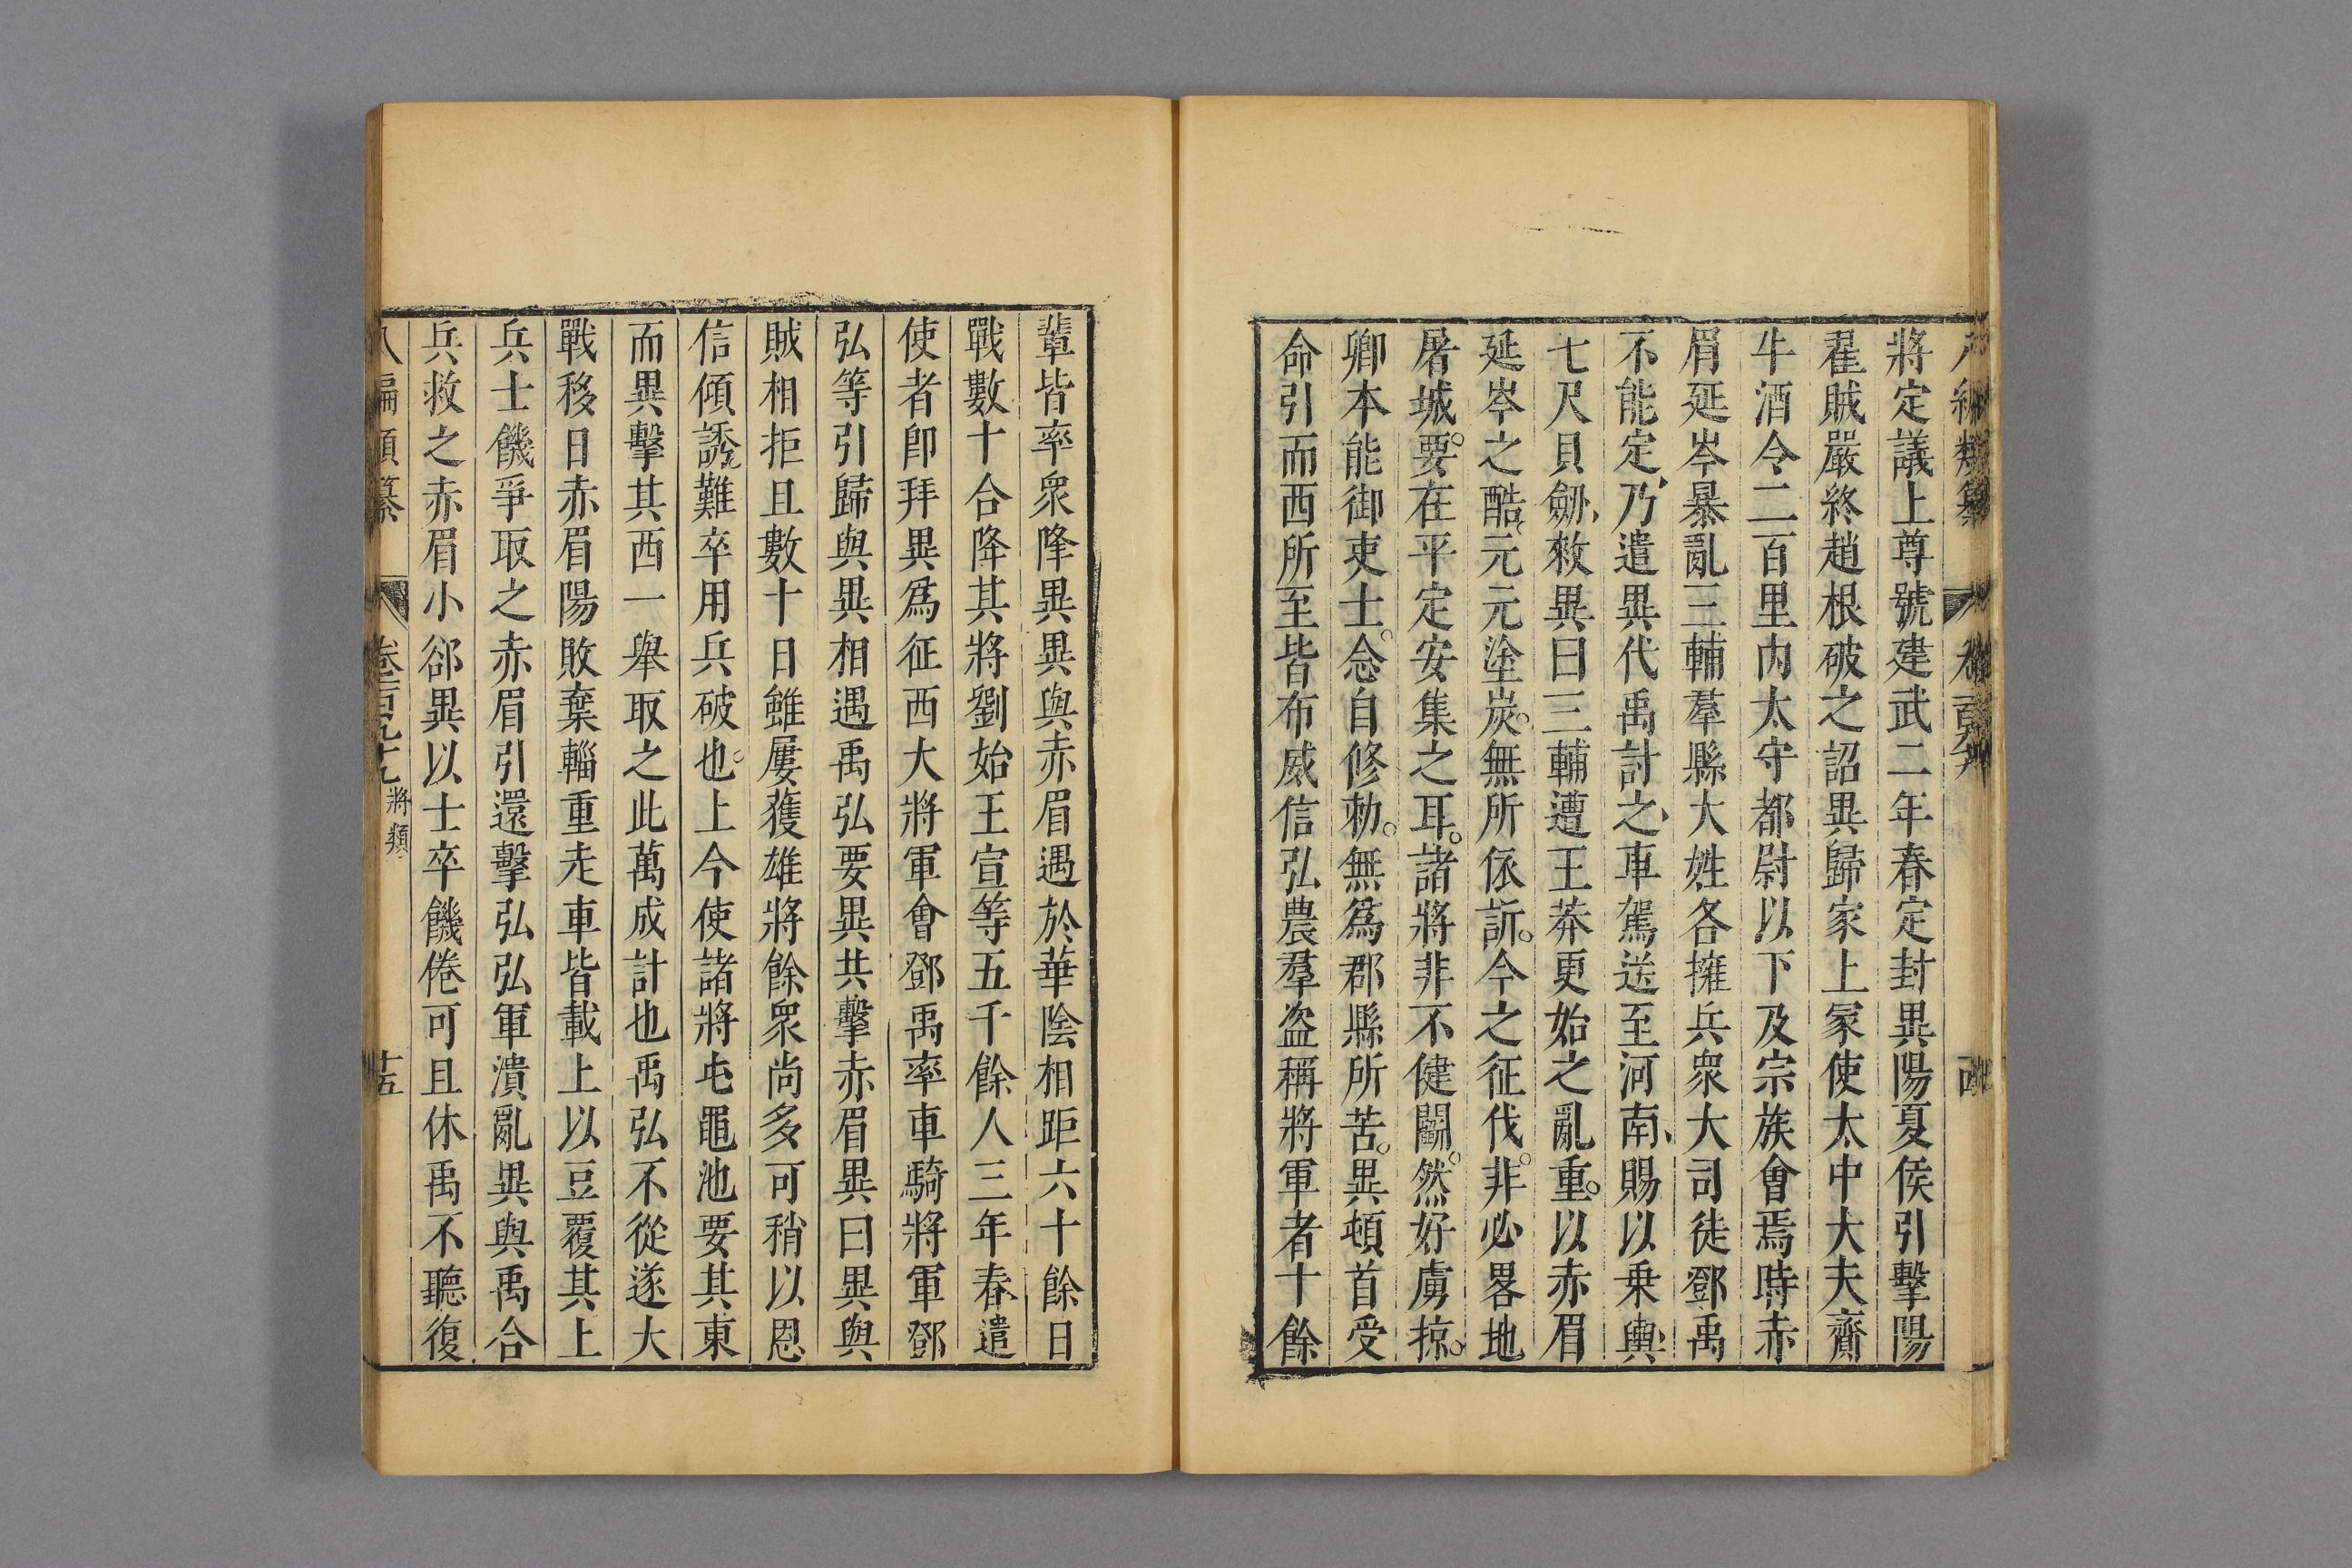 將定議上尊號建武二年春定封異陽夏侯引擊陽
翟賊嚴終趙根破之詔異歸家上冢使太中大夫齎
牛酒令二百里內太守都尉以下及宗族會焉時赤
眉延岑暴亂三輔羣縣大姓各擁兵衆大司徒鄧禹
不能定乃遣異代禹討之車駕送至河南賜以乗輿
七尺具劔敕異曰三輔遭王莽更始之亂重以赤眉
延岑之酷元元塗炭無所依訴今之征伐非必畧地
屠城要在平定安集之耳諸將非不健鬭然好虜掠
卿本能御吏士念自修勑無爲郡縣所苦異頓首受
命引而西所至皆布威信弘農羣盗稱將軍者十餘
輩皆率衆降異異與赤眉遇於華陰相距六十餘日
戰數十合降其將劉始王宣等五千餘人三年春遣
使者卽拜異爲征西大將軍會鄧禹率車騎將軍鄧
弘等引歸與異相遇禹弘要異共擊赤眉異曰異與
賊相拒且數十日雖屢獲雄將餘衆尚多可稍以恩
信傾誘難卒用兵破也上今使諸將屯黽池要其東
而異擊其西一舉取之此萬成計也禹弘不從遂大
戰移日赤眉陽敗棄輜重走車皆載土以豆覆其上
兵士饑爭取之赤眉引還擊弘弘軍潰亂異與禹合
兵救之赤眉小郤異以士卒饑倦可且休禹不聽復
八編類纂 卷二百九十九 將類 十五